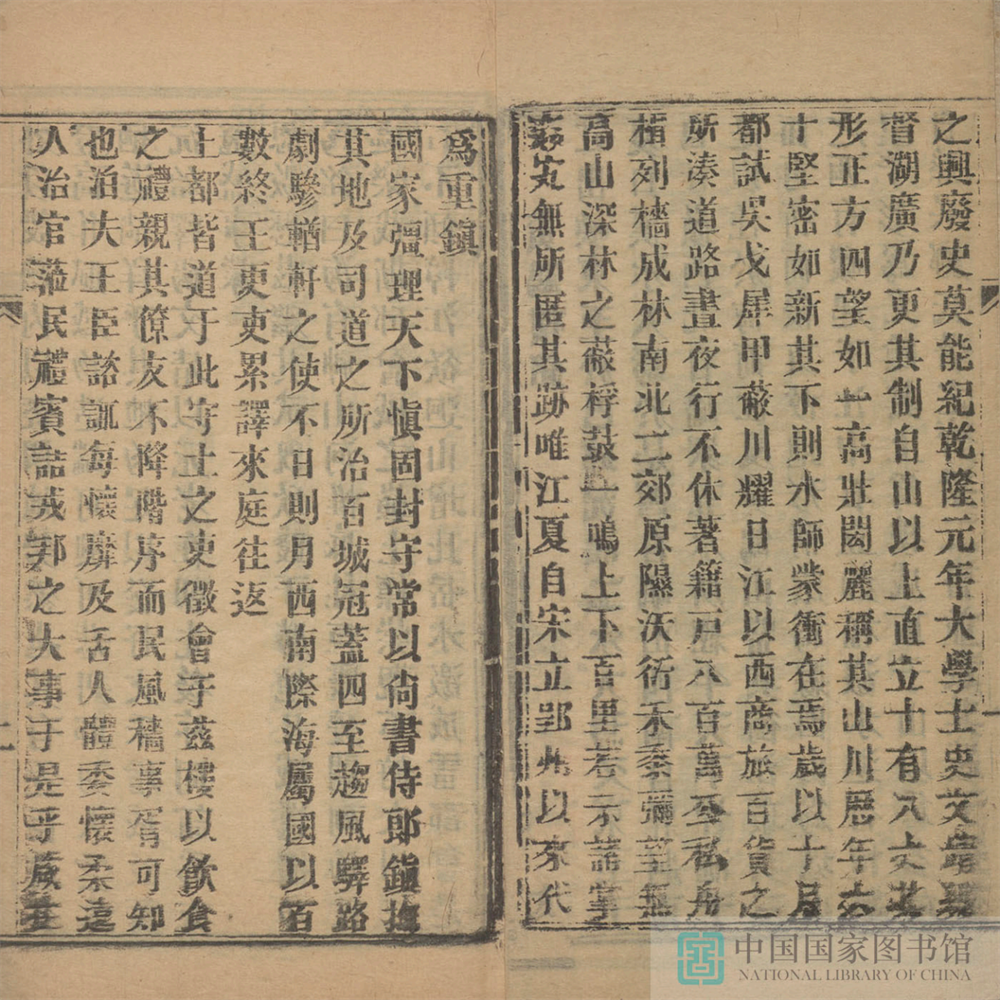 之興廢史莫能紀乾隆元年大學士史文靖
督湖廣乃更其制自山以上直立十有八丈其
形正方四望如一高壯閎麗稱其山川歷年六
十堅密如新其下則水師蒙衝在焉歲以十月
都試吳戈犀甲蔽川耀日江以西商旅百貨之
所湊道路晝夜行不休著籍戶八百萬公私舟
楫列檣成林南北二郊原隰沃衍禾黍彌望無
高山深林之蔽桴鼓一鳴上下百里若示諸掌
姦宄無所匿其跡唯江夏自宋立郢州以來代
爲重鎮
國家彊理天下愼固封守常以尙書侍郎鎮撫
其地及司道之所治百城冠蓋四至趨風驛路
劇驂輶軒之使不日則月西南際海屬國以百
數終王吏吏累譯來庭往返
上都皆道于此守土之吏徵會于茲樓以飮食
之禮親其僚友不降階序而民風穡事胥可知
也洎夫王臣諮諏每懷靡及舌人體委懷柔遠
人治官蒞民禮賓詰戎邦之大事于是乎咸在
中国国家图书馆
NATIONAL LIBRARY OF CHINA